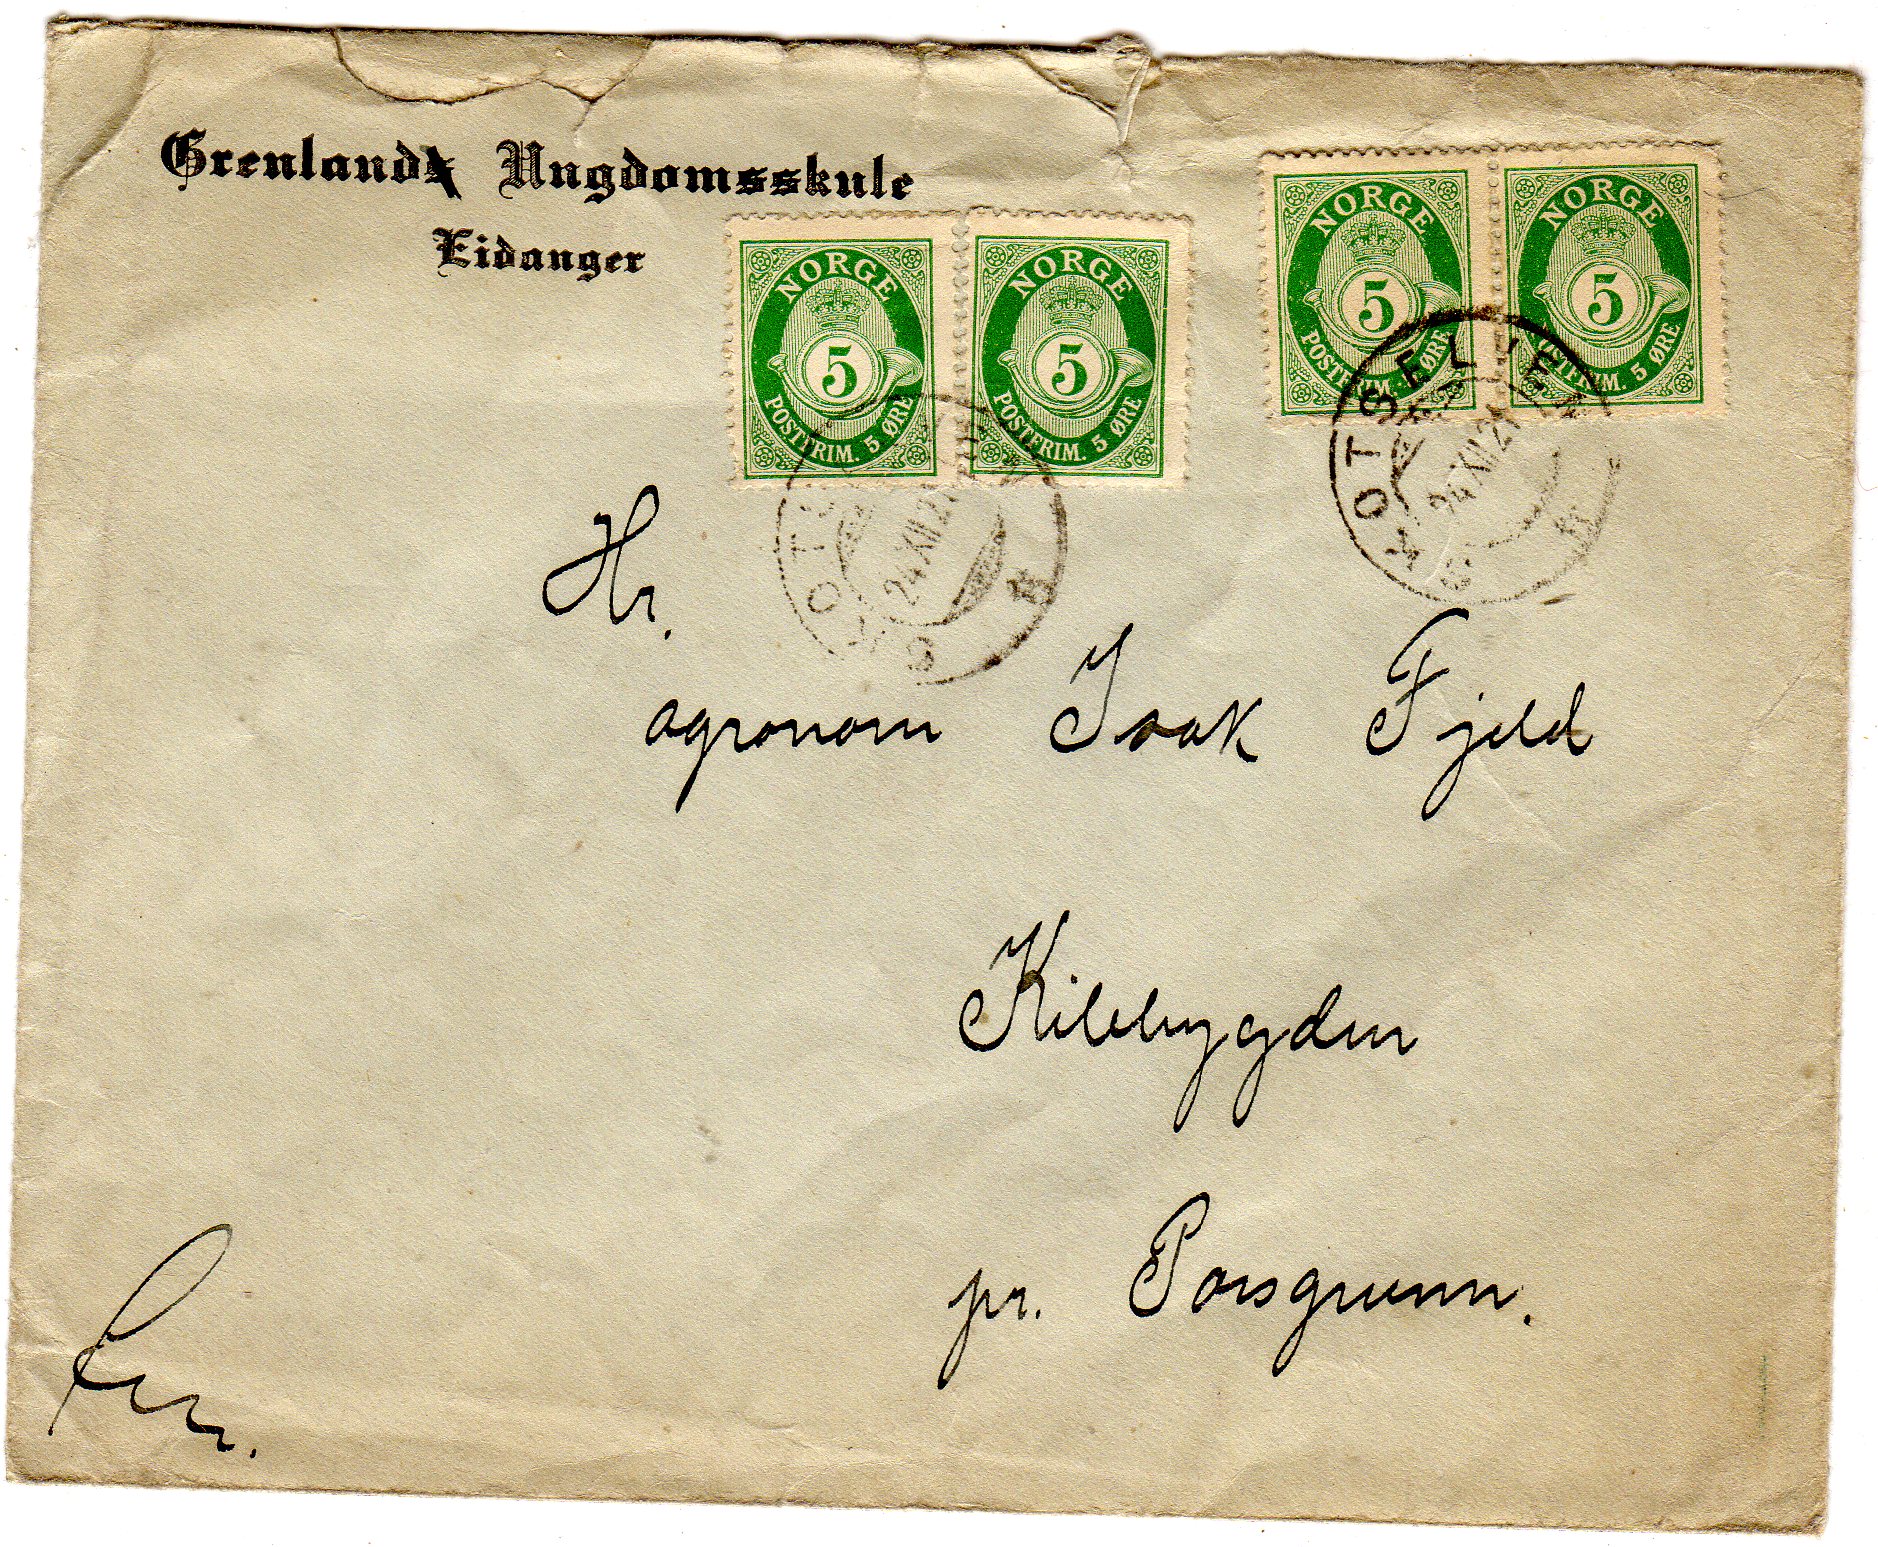 Grenland Ungdomsskule
Eidanger
NORGE
5
POSTFRIM. 5 ØRE
NORGE
5
POSTFRIM. 5 ØRE
NORGE
5
POSTFRIM. 5 ØRE
NORGE
5
POSTFRIM. 5 ØRE
24 XII 21
SKOTSELVEN
24 XII 21
Hr.
agronom Isak Fjeld
Kilebygden
pr. Porsgrunn.